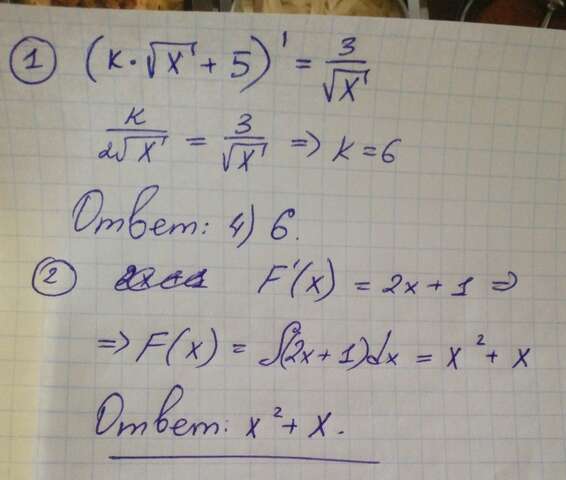 ① (k·√x + 5)' = 3/√x
k/2√x = 3/√x => k = 6
Ответ: 4) 6.
② F'(x) = 2x + 1 =>
=> F(x) = ∫(2x + 1)dx = x² + x
Ответ: x² + x.